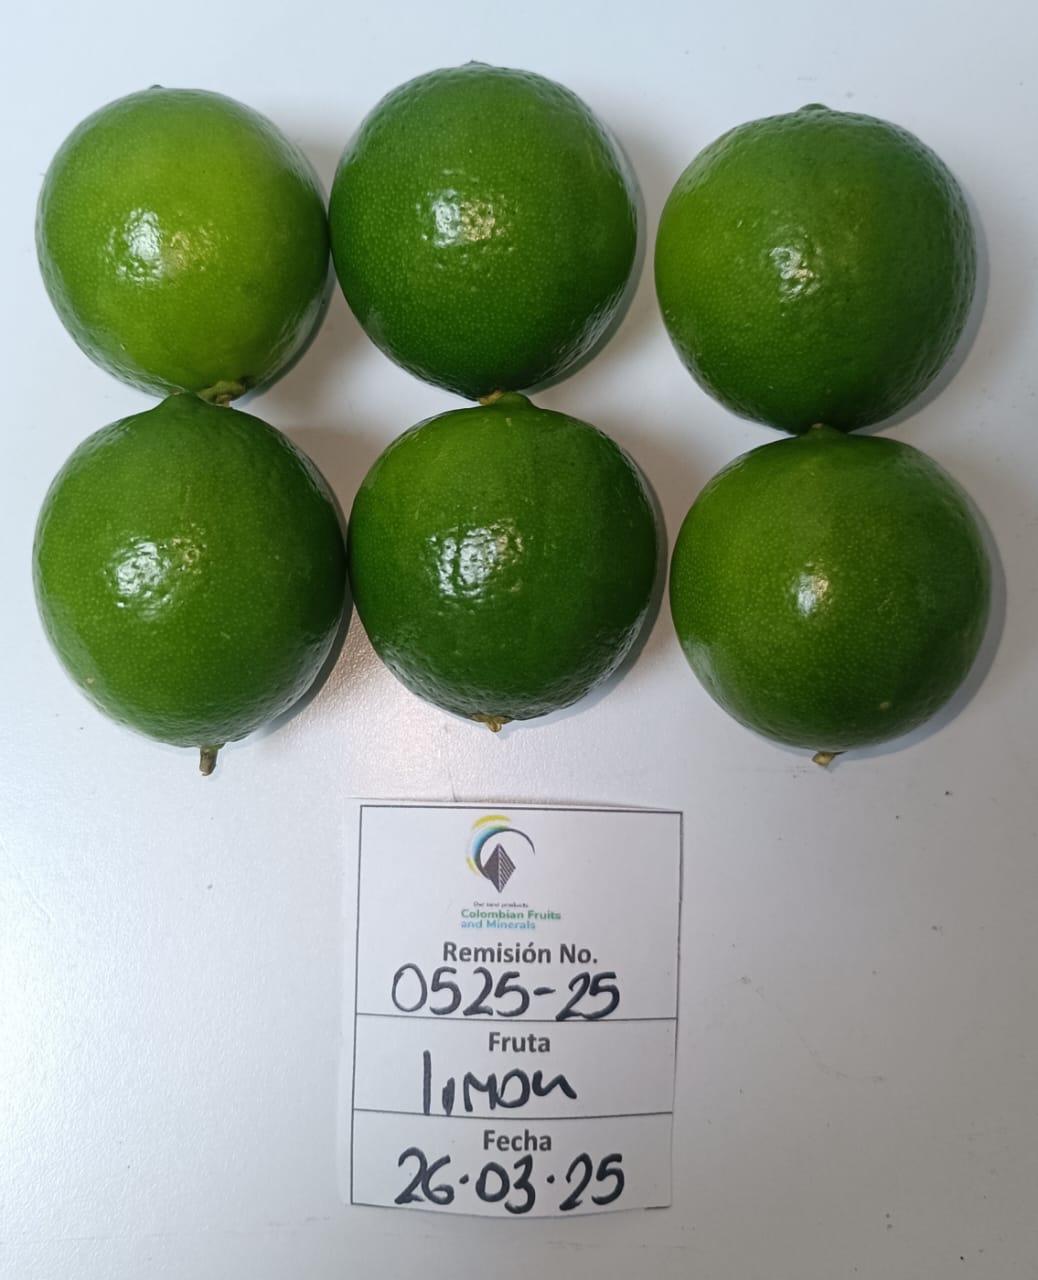 Our best products
Colombian Fruits
and Minerals
Remisión No.
0525-25
Fruta
limon
Fecha
26·03·25